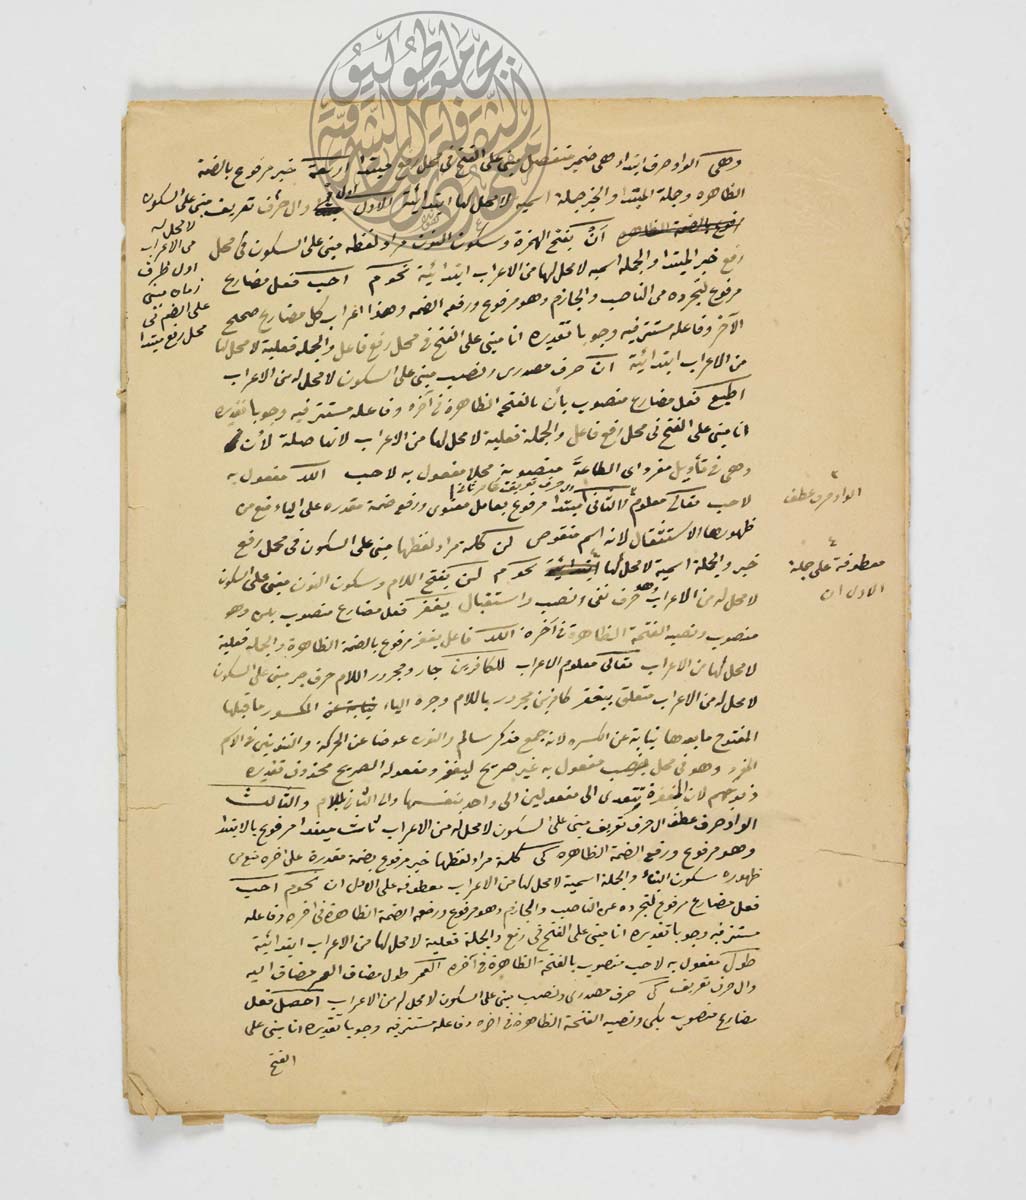 وهى الواو حرف ابتدا وهى ضمير منفصل مبنى على الفتح فى محل رفع مبتدا اربعة خبر مرفوع بالضمة
الظاهرة وجملة المبتدا والخبر جملة اسمية لا محل لها ابتدائية الاول اول وال حرف تعريف مبنى على السكون
لا محل له
من الاعراب
اول ظرف
زمان مبنى
على الضم فى
محل رفع مبتدا
رفع بالضمة الظاهره أن بفتح الهمزة وسكون النون مراد لفظه مبنى على السكون فى محل
رفع خبر المبتدا والجملة اسميه لا محل لها من الاعراب ابتدائية نحوم احب فعل مضارع
مرفوع لتجرده من الناصب والجازم وهو مرفوع ورفعه الضمه وهذا اعراب كل مضارع صحيح
الآخر وفاعله مستتر فيه وجوبا تقديره انا مبنى على الفتح فى محل رفع فاعل والجملة فعلية لا محل لها
من الاعراب ابتدائية ان حرف مصدرى ونصب مبنى على السكون لا محل له من الاعراب
اطيع فعل مضارع منصوب بأن بالفتحة الظاهرة فى آخره وفاعله مستتر فيه وجوبا تقديره
انا مبنى على الفتح فى محل رفع فاعل والجملة فعلية لا محل لها من الاعراب لانها صلة لأن
وهى فى تأويل مفرد اى الطاعة منصوبة محلا مفعول به لاحب الله مفعول به
لاحب تعالى معلوم والثانى مبتدا مرفوع بعامل معنوى ورفع ضمة مقدره على الياء منع من
ظهورها الاستثقال لانه اسم منقوص لن كلمة مراد لفظها مبنى على السكون فى محل رفع
خبر والجملة اسمية لا محل لها ابتدائية نحوم لن بفتح اللام وسكون النون مبنى على السكون
لا محل له من الاعراب حرف نفى ونصب واستقبال يغفر فعل مضارع منصوب بلن وهو
منصوب ونصبه الفتحة الظاهرة فى آخره الله فاعل يغفر مرفوع بالضمة الظاهرة والجملة فعلية
لا محل لها من الاعراب تعالى معلوم الاعراب للكافرين جار ومجرور اللام حرف جر مبنى على السكون
لا محل له من الاعراب متعلق بيغفر كافرين مجرور باللام وجره الياء نيابة عن المكسور ما قبلها
المفتوح ما بعدها نيابة عن الكسره لانه جمع مذكر سالم والنون عوضا عن الحركة والتنوين فى الاسم
المفرد وهو فى محل نصب مفعول به غير صريح ليغفر ومفعوله الصريح محذوف تقديره
ذنوبهم لان المغفرة تتعدى الى مفعولين الى واحد بنفسها والى الثانى باللام والثالث
الواو حرف عطف ال حرف تعريف مبنى على السكون لا محل له من الاعراب ثالث مبتدا مرفوع بالابتدا
وهو مرفوع ورفع الضمة الظاهره كى كلمة مراد لفظها خبر مرفوع بضمة مقدرة على اخره منع من
ظهوره سكون البناء والجملة اسمية لا محل لها من الاعراب معطوفه على الاول ان نحوم احب
فعل مضارع مرفوع لتجرده عن الناصب والجازم وهو مرفوع ورفعه الضمة الظاهرة فى اخره وفاعله
مستتر فيه وجوبا تقديره انا مبنى على الفتح فى رفع والجملة فعلية لا محل لها من الاعراب ابتدائية
طول مفعول به لاحب منصوب بالفتحة الظاهرة فى آخره العمر طول مضاف العمر مضاف اليه
وال حرف تعريف كى حرف مصدرى ونصب مبنى على السكون لا محل له من الاعراب احصل فعل
مضارع منصوب بكى ونصبه الفتحة الظاهرة فى اخره وفاعله مستتر فيه وجوبا تقديره انا مبنى على
الفتح
الواو حرف عطف
معطوفة على جملة
الاول ان